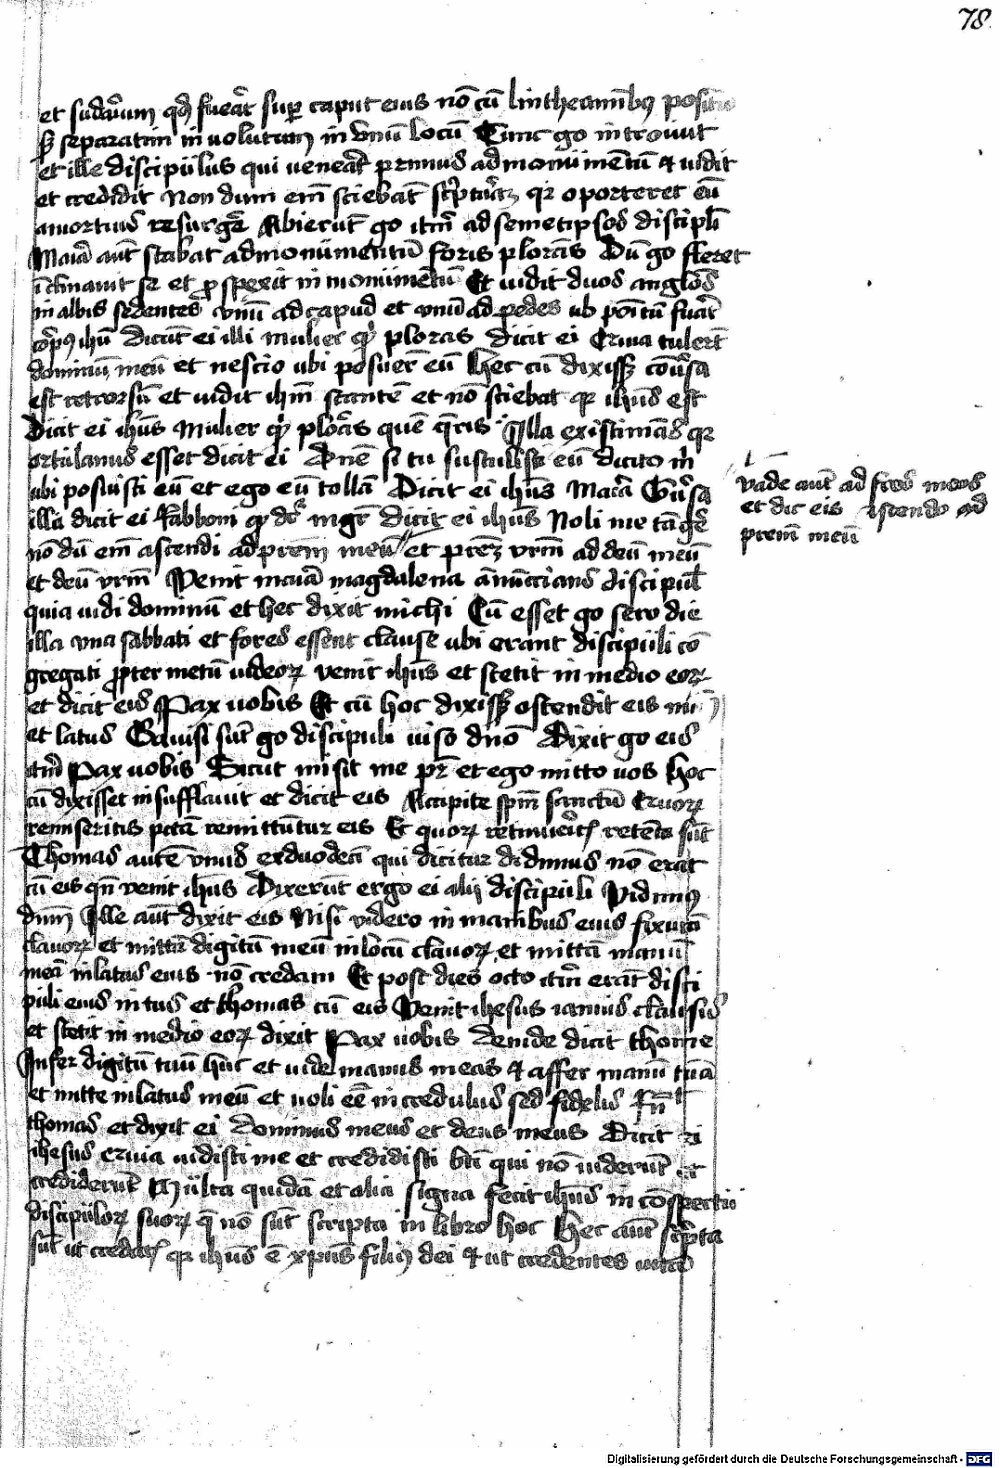 78
et sudariũm qd̃ fuerat̃ suꝑ caput eius nõ cũ lintheaminibꝫ positũ
sꝫ separatim inuolutum in vnũ locũ Tunc go introiuit
et ille discipulus qui uenerat̃ primus ad monumentũ & uidit
et credidit Non dum em̃ sciebãt scͥpturã qꝛ oporteret eũ
a mortuis resurgẽ Abierũt go itm̃ ad semetipsos discipl̃i
Maria aũt stabat ad monumentũ foris plorãs Dũ go fleret
ĩclinauit se et ꝓspexit in monumẽtũ Et uidit duos angl̃os
in albis sedentes vnũ ad capud et vnũ ad pedes ubi poĩtũ fuãt
corpꝯ ihũ Dicũt ei illi Mulier qͥd ploras dicit ei Cruia tulerũt
dominũ meũ et nescio ubi posuerũ eũ Hec cũ dixissꝫ cõuͥsa
est retrorsũ et uidit ihm̃ stantẽ et nõ sciebat qꝛ ihũs est
Dicit ei ihũs Mulier qͥd plorãs quẽ q̃ris Illa existimãs qꝛ
ortulanus esset dicit ei Dñe si tu sustulisti eũ dicito m̃
ubi posuisti eũ et ego eũ tollã Dicit ei ihũs Maria Cõuͥsa
illa dicit ei Rabboni qd̃ dr̃ mgr̃ Dicit ei ihũs Noli me tãgẽ
nõ dũ em̃ ascendi ad prem̃ meũ et prem̃ vrm̃ ad deũ meũ
vade aũt ad frẽs meos
et dic eis Ascendo ad
prem̃ meũ
et deũ vrm̃ Venit maria magdalena ãnũccians discipul̃
quia uidi dominũ et hec dixit michi Cũ esset go sero die
illa vna sabbati et fores essent clause ubi erant discipuli cõ
gregati ꝓpter metũ iudeoꝝ venit ihũs et stetit in medio eoꝝ
et dicit eis Pax uobis Et cũ hoc dixissꝫ ostendit eis
et latus Gauisi sũt go discipuli uiso dño Dixit go eis
itm̃ Pax uobis Sicut misit me pr̃ et ego mitto uos Hoc
cũ dixisset insufflauit et dicit eis Accipite spm̃ sanctũ Cruoꝝ
remiseritis pctã remittũtur eis Et quoꝝ retinueritꝭ retẽta sũt
Thomas autẽ vnus ex duodecĩ qui dicitur didimus nõ erat
cũ eis qñ venit ihũs Dixerũt ergo ei alij discipuli Vidimꝰ
dñm Ille aũt dixit eis Nisi videro in manibus eius fixurã
clauoꝝ et mittã digitũ meũ in locũ clauoꝝ et mittã manũ
meã in latus eius nõ credam Et post dies octo itm̃ erãt disci
puli eius intus et thomas cũ eis Venit ihesus ianuis clausis
et stetit in medio eoꝝ dixit Pax uobis deinde dicit thome
Infer digitũ tuũ huc et uide manus meas & affer manũ tuã
et mitte in latus meũ et noli eẽ incredulus sed fidelis Rñ
thomas et dixit ei Dominus meus et deus meus Dicit ei
ihesus Cruia uidisti me et credidisti btĩ qui nõ uiderũt et
crediderũt Multa quidã et alia signa fecit ihũs in cõspectu
discipuloꝝ suoꝝ q̃ nõ sũt scripta in libro hoc Hec aũt scͥpta
sũt ut credatꝭ qꝛ ihũs ẽ xp̃us filiꝰ dei & ut credentes uitã
Digitalisierung gefördert durch die Deutsche Forschungsgemeinschaft - DFG